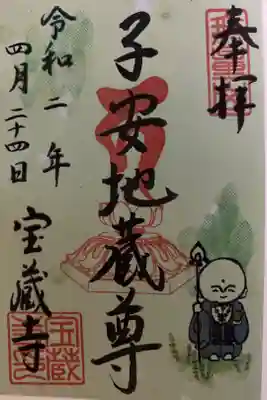 奉拝
子安地蔵尊
令和二年
四月二十四日
宝蔵寺